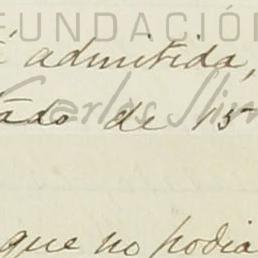 FUNDACIÓ
admitida,
Carlos Slim
tado de 15
que no podia